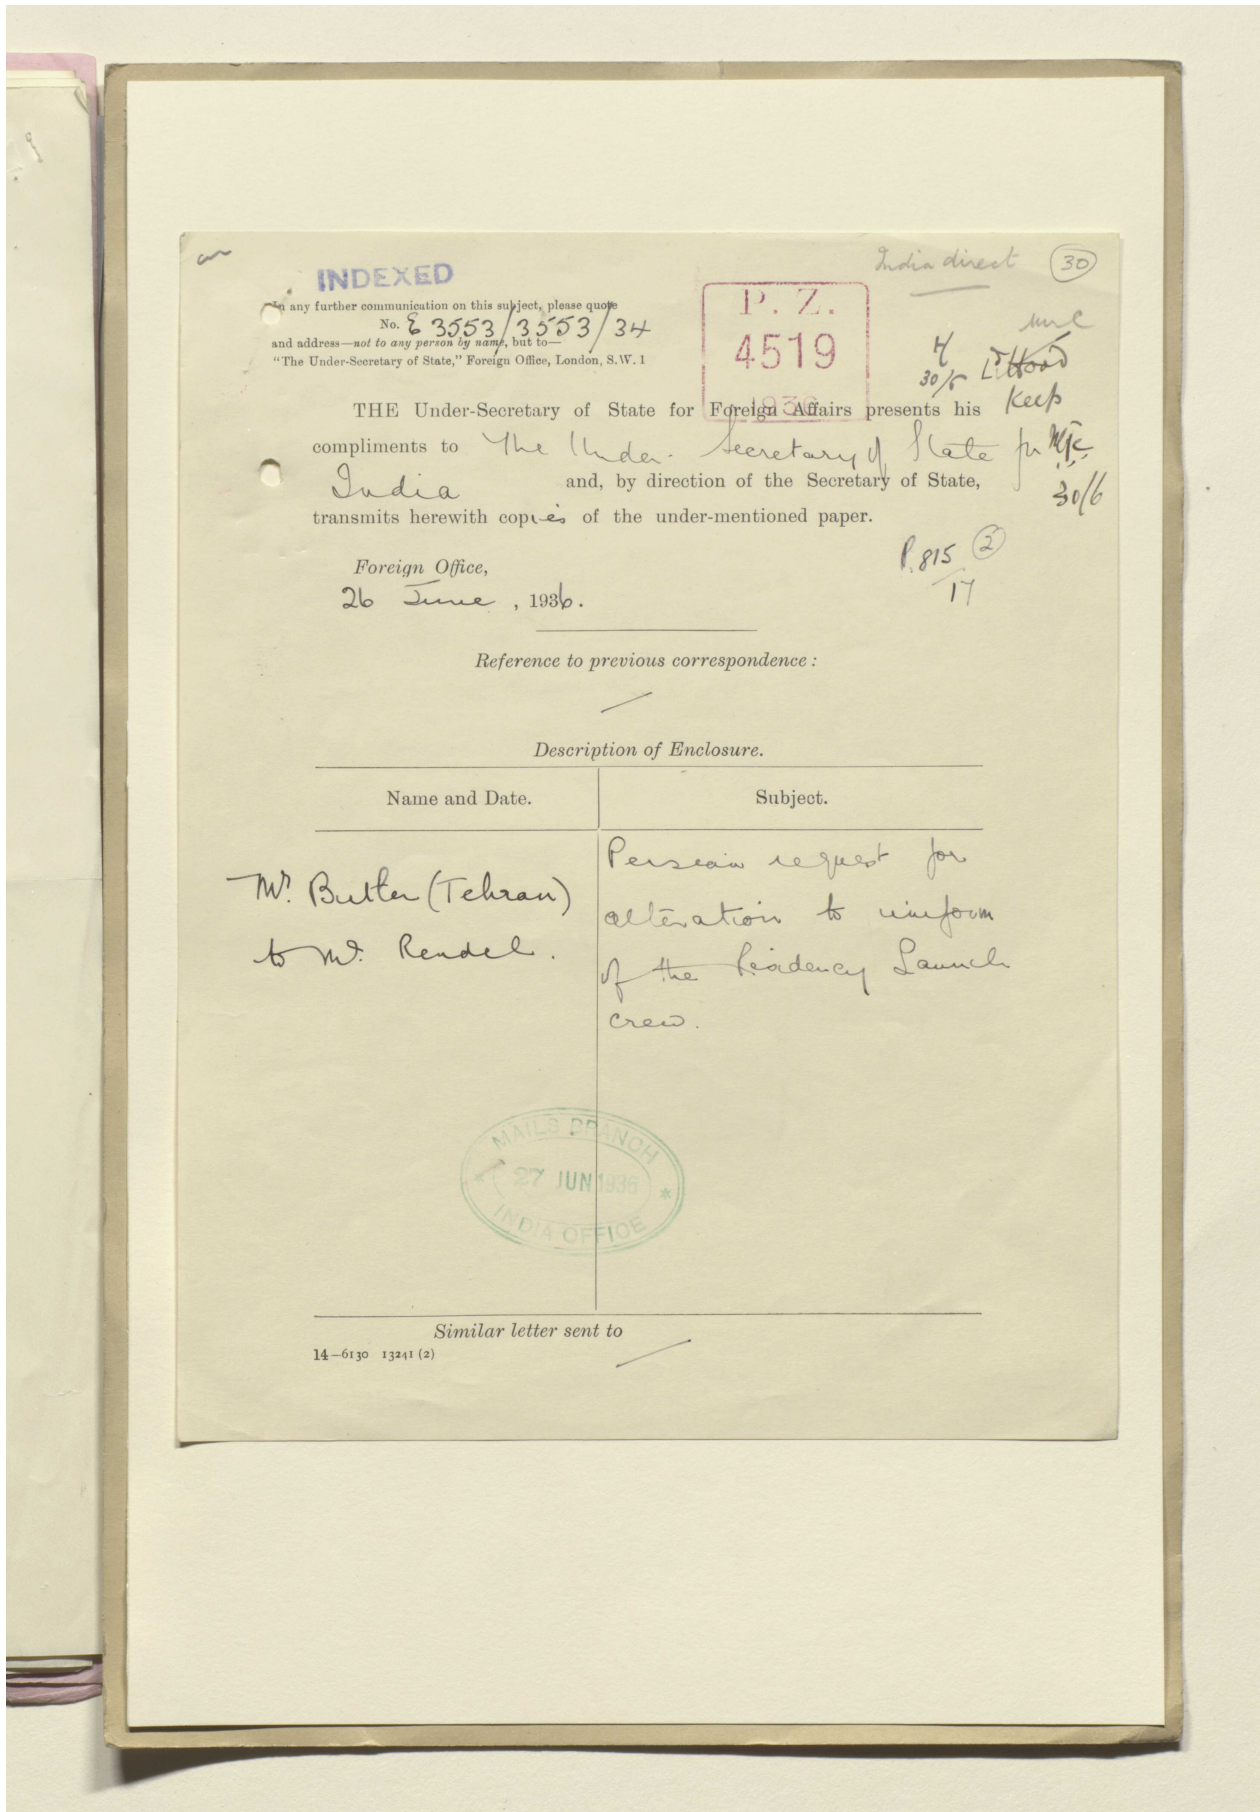 India direct 30
INDEXED
In any further communication on this subject, please quote
No. E 3553/3553/34
and address—not to any person by name, but to—
"The Under-Secretary of State," Foreign Office, London, S.W. 1
P. Z.
4519
1936
30/6
Keep
30/6
THE Under-Secretary of State for Foreign Affairs presents his
compliments to The Under-Secretary of State for
India and, by direction of the Secretary of State,
transmits herewith copies of the under-mentioned paper.
P. 815 2
17
Foreign Office,
26 June, 1936.
Reference to previous correspondence:
Description of Enclosure.
Name and Date. Subject.
Mr. Butler (Tehran)
to Mr. Rendel.
Persian request for
alteration to uniform
of the Residency Launch
crew.
MAILS BRANCH
27 JUN 1936
INDIA OFFICE
Similar letter sent to
14—6130 13241 (2)